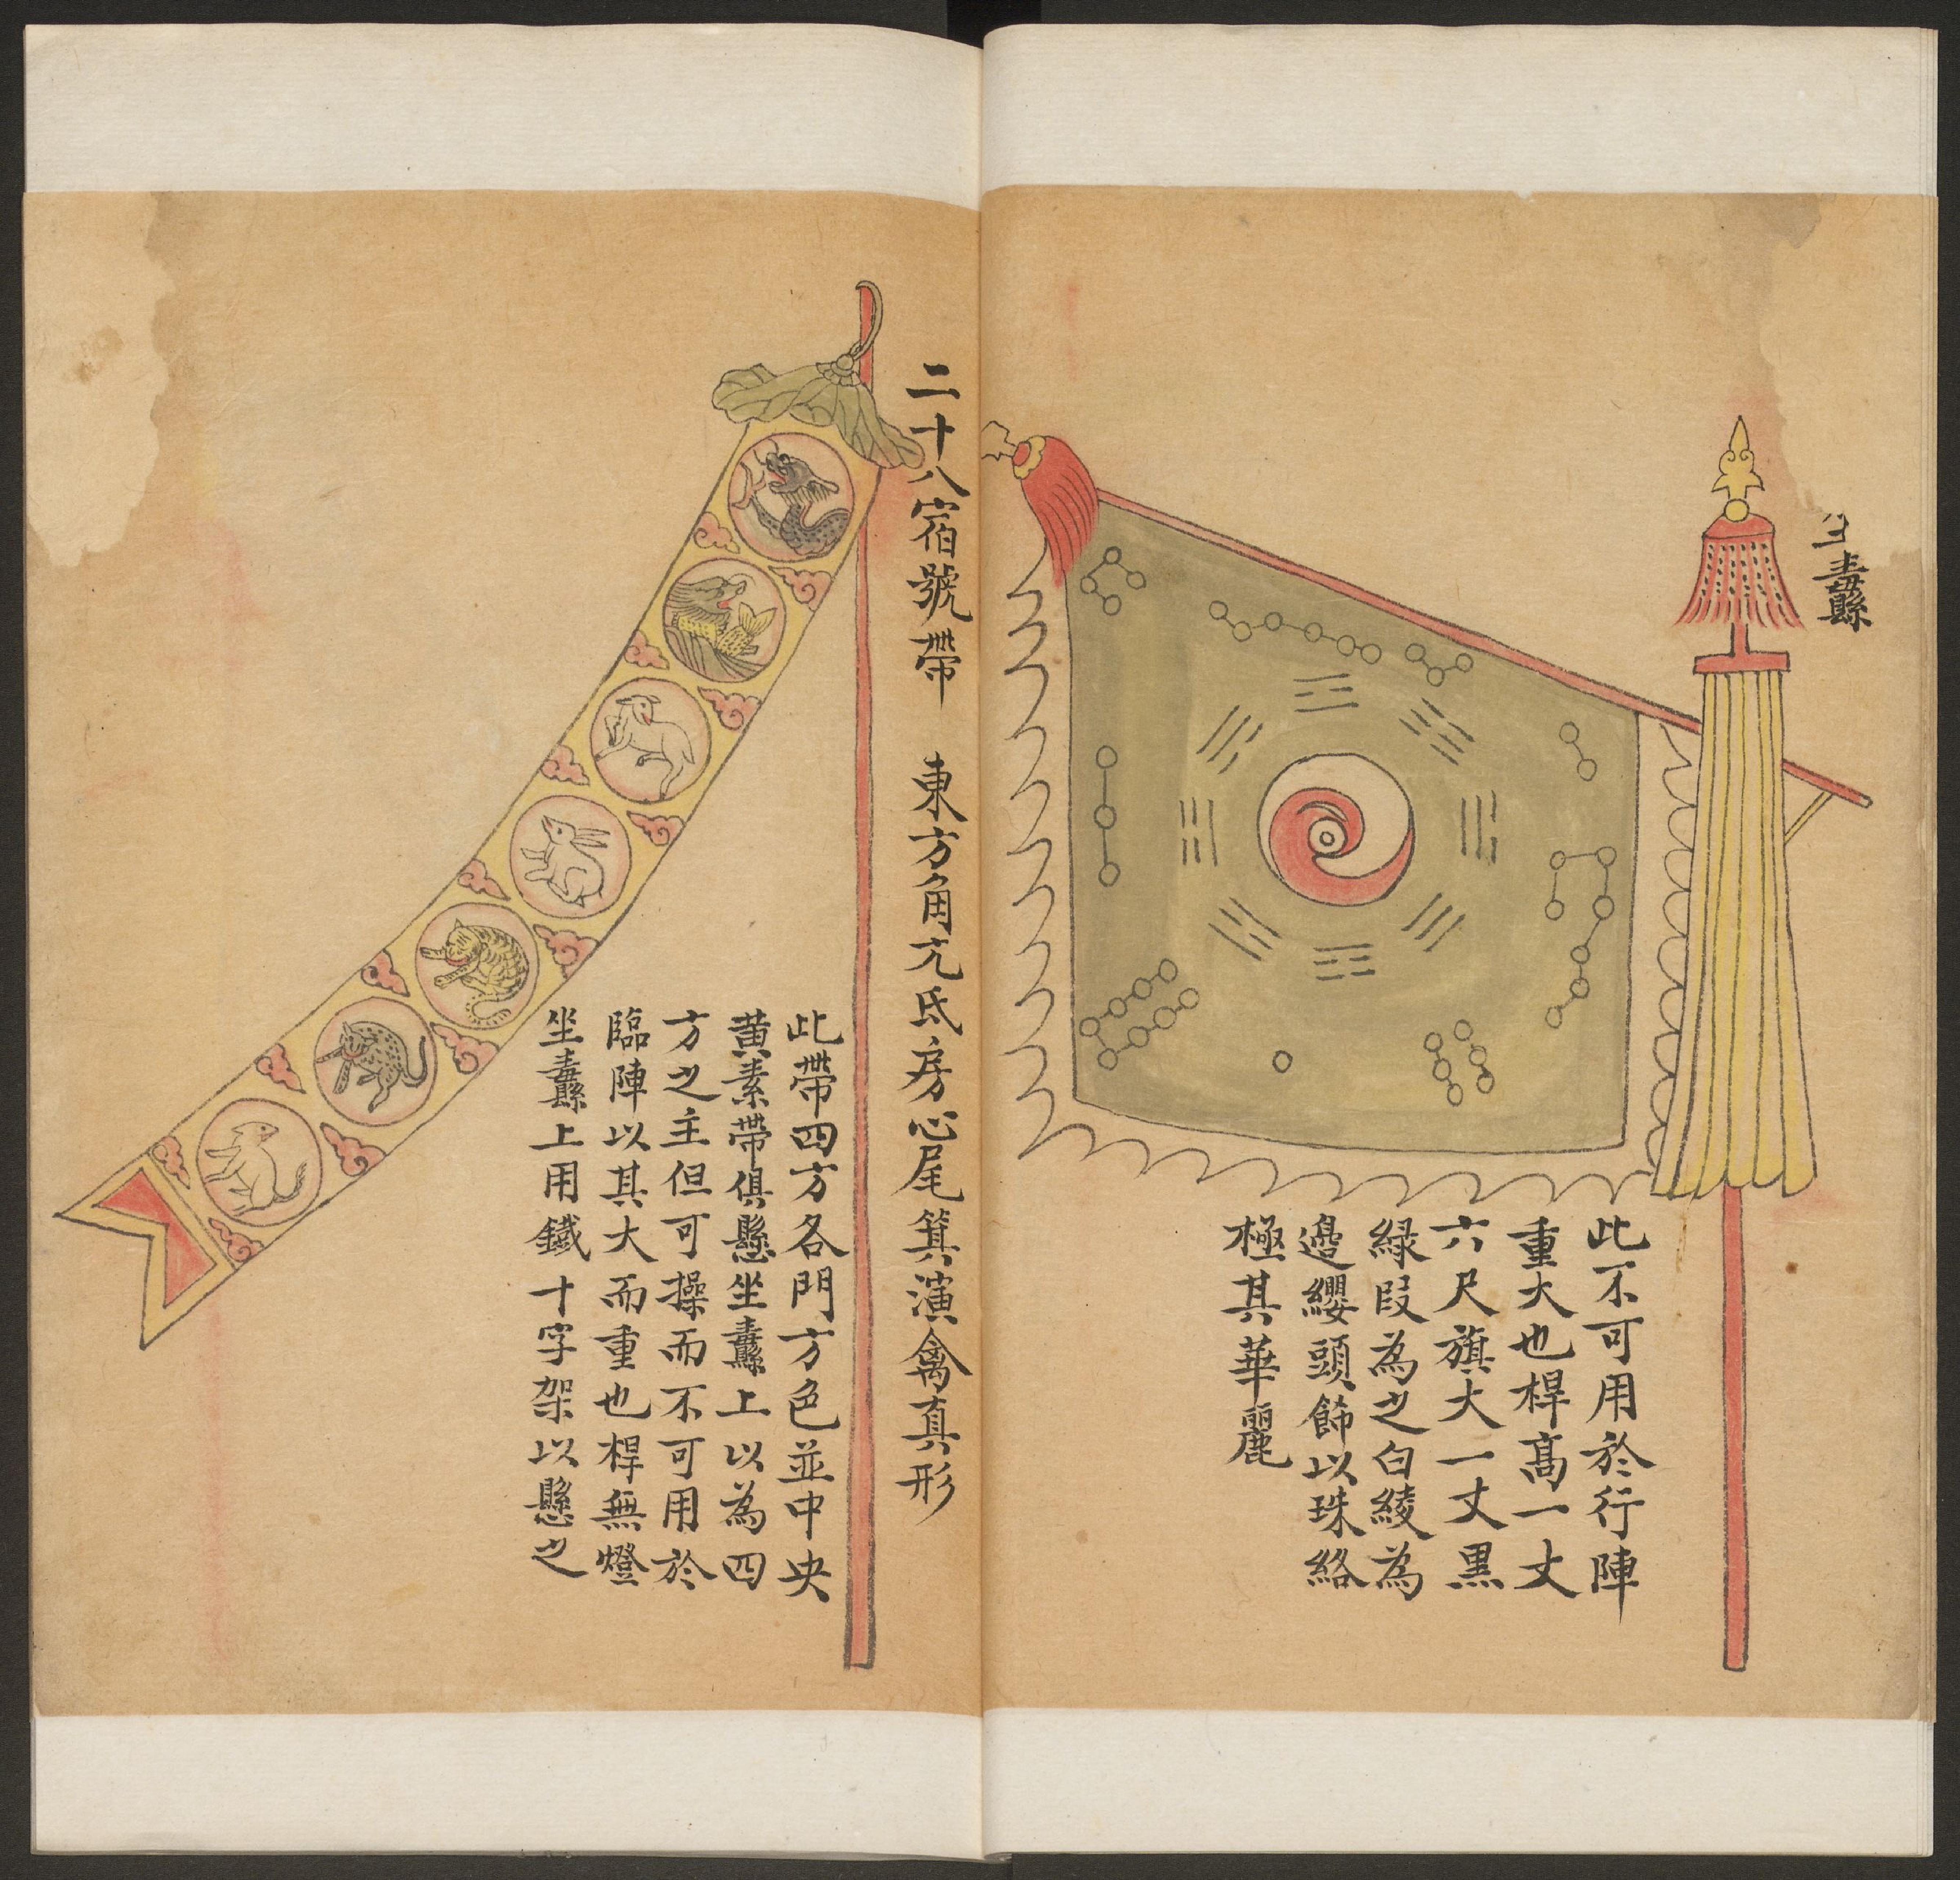 坐纛
此不可用於行陣
重大也桿高一丈
六尺旗大一丈黒
緑段為之白綾為
邊纓頭飾以珠絡
極其華麗
二十八宿號帶　東方角亢氐房心尾箕演禽真形
此帶四方各門方色並中央
黄素帶俱懸坐纛上以為四
方之主但可操而不可用於
臨陣以其大而重也桿無燈
坐纛上用鐵十字架以懸之